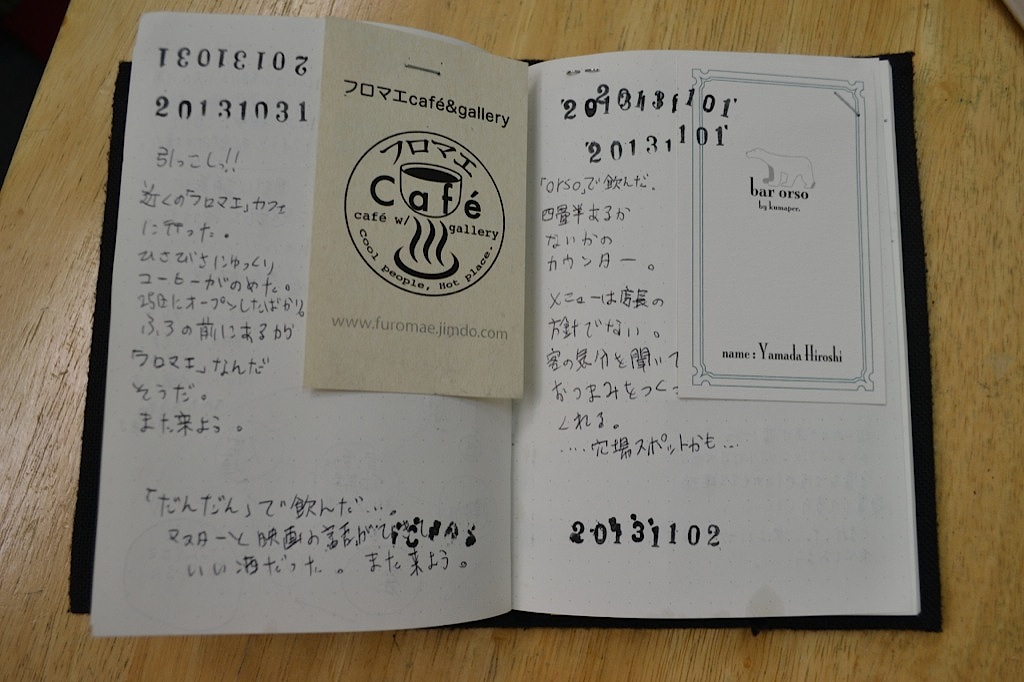 20131031
20131031
引っこし!!
近くの「フロマエ」カフェ
に行った。
ひさびさにゆっくり
コーヒーがのめた。
25日にオープンしたばかり。
ふろの前にあるから
「フロマエ」なんだ
そうだ。
また来よう。
「だんだん」で飲んだ…。
マスターと映画の話が
いい酒だった。また来よう。
フロマエcafé&gallery
フロマエ
Café
café w/ gallery
Cool people, Hot place.
www.furomae.jimdo.com
20131101
「orso」で飲んだ.
四畳半あるか
ないかの
カウンター。
メニューは店長の
方針でない。
客の気分を聞いて
おつまみをつくっ
くれる。
....穴場スポットかも...
20131102
bar orso
by kumaper.
name : Yamada Hiroshi